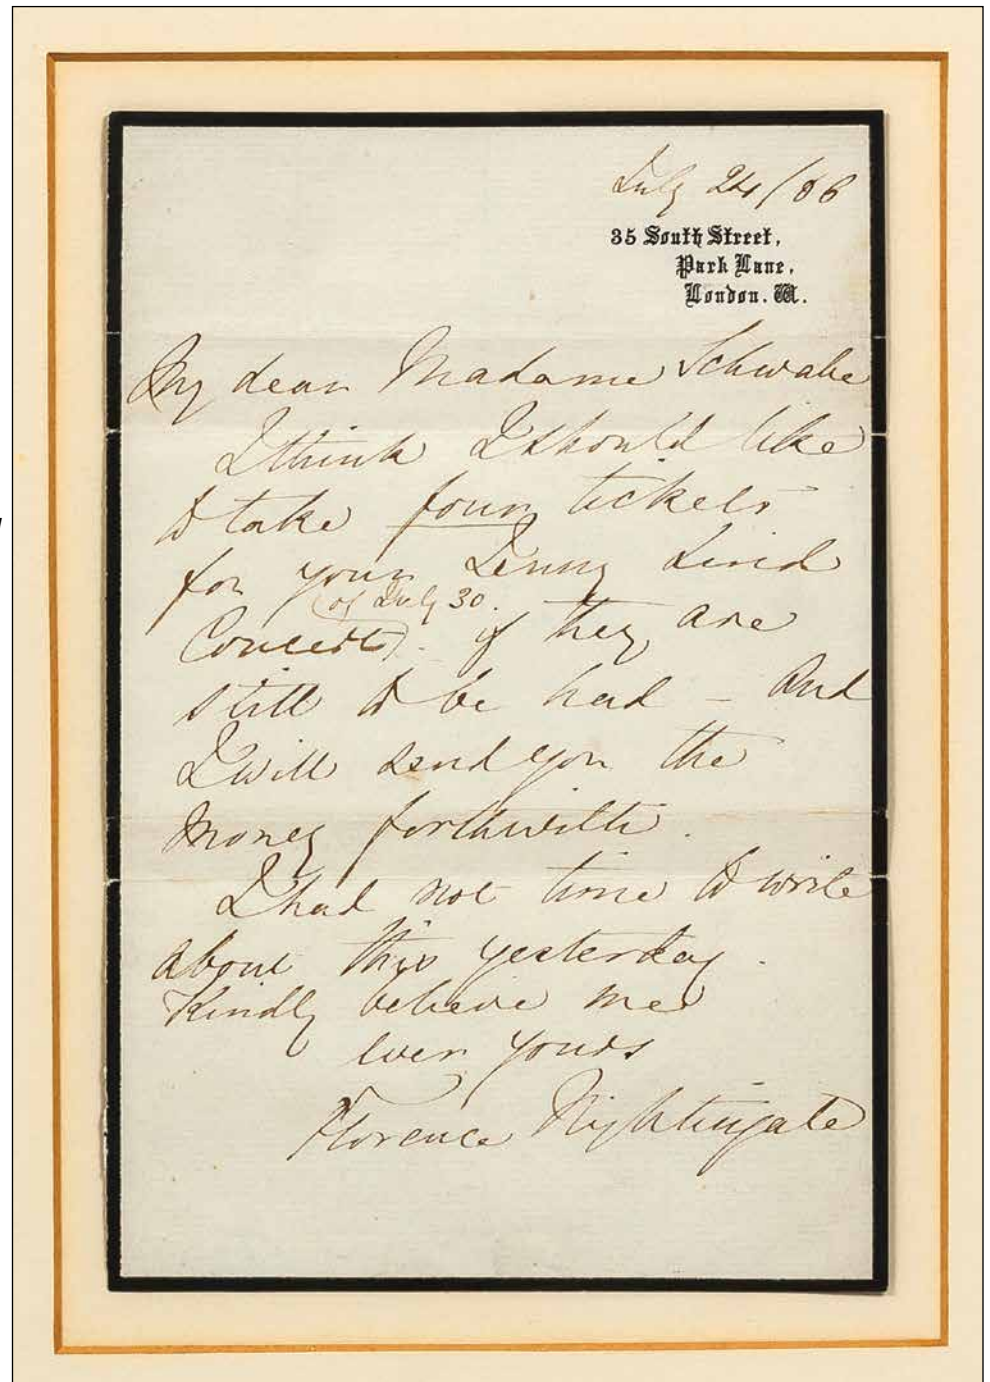 July 24/86
35 South Street,
Park Lane,
London. W.
My dear Madame Schwabe
I think I should like
to take four tickets
for your Jenny Lind
(of July 30.
Concert). if they are
still to be had – And
I will send you the
money forthwith.
I had not time to write
about this yesterday.
Kindly believe me
ever yours
Florence Nightingale